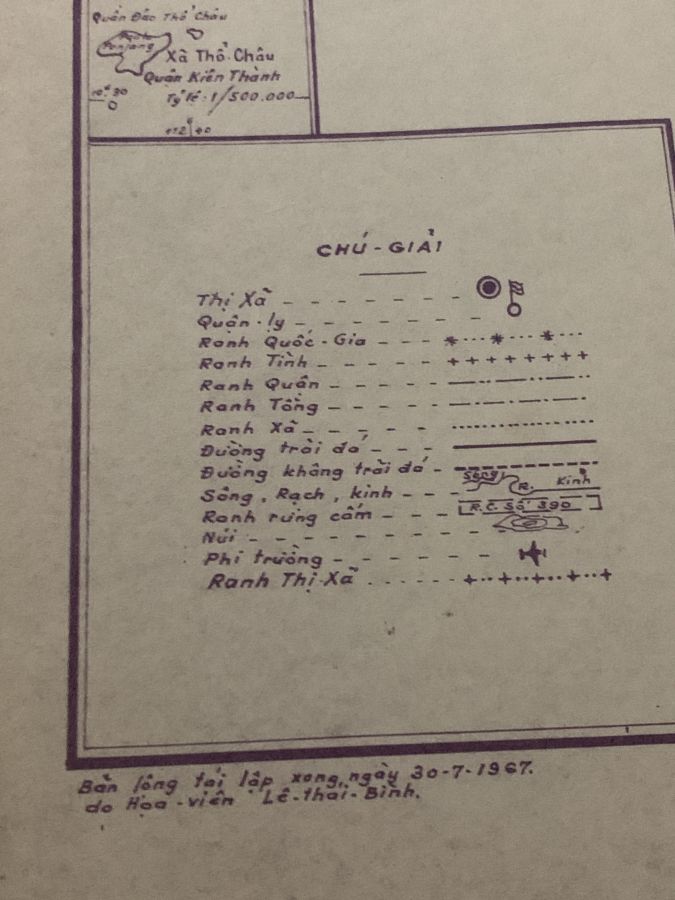 Quần Đảo Thổ Châu
Poulo
Panjang
Xã Thổ Châu
Quận Kiên Thành
Tỷ lệ: 1/500.000
CHÚ-GIẢI
Thị Xã
Quận-lỵ
Ranh Quốc-Gia
Ranh Tỉnh
Ranh Quận
Ranh Tổng
Ranh Xã
Đường trải đá
Đường không trải đá
Sông, Rạch, kinh
Sông R. Kinh
Ranh rừng cấm
R.C. Số 390
Núi
Phi trường
Ranh Thị Xã
Bản lông tái lập xong, ngày 30-7-1967.
do Họa-viên Lê-thái-Bình.